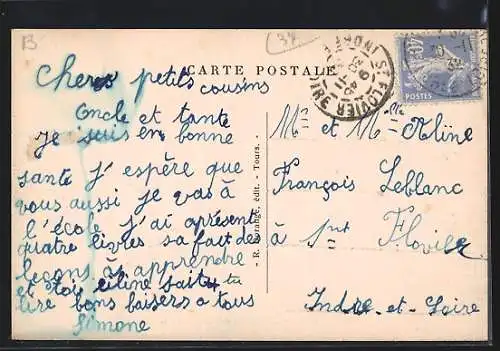 CARTE POSTALE
Chers petits cousins
Oncle et tante
Je suis en bonne
santé j'espère que
vous aussi je vas à
l'école j'ai apresent
quatre livres sa fait des
leçons à apprendre
et toi céline sait tu
lire bons baisers a tous
Simone
R. édit. - Tours.
Mr et Mme Aline
François Leblanc
à St
Flovier
Indre-et-Loire
INDRE
ST FLOVIER
40